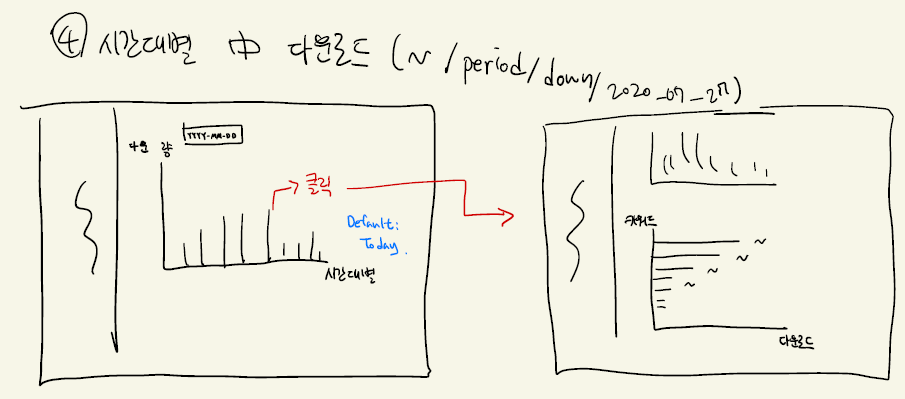 ④ 시간대별 中 다운로드 (~/period/down/2020_07_27)
YYYY-MM-DD
다운 량
클릭
Default:
Today.
시간대별
키워드
~
~
~
~
다운로드